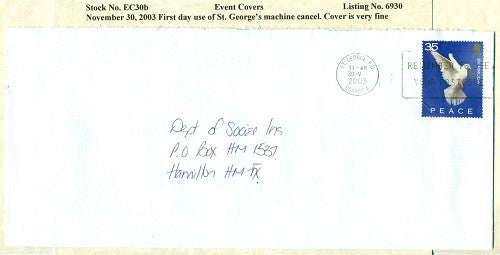 Stock No. EC30b Event Covers Listing No. 6930
November 30, 2003 First day use of St. George's machine cancel. Cover is very fine
ST. GEORGE P.O.
11-AM
30-V
2003
BERMUDA
REMEMBER
YOUR
35
BERMUDA
PEACE
Dept of Social Ins
P.O Box HM 1537
Hamilton HM FX